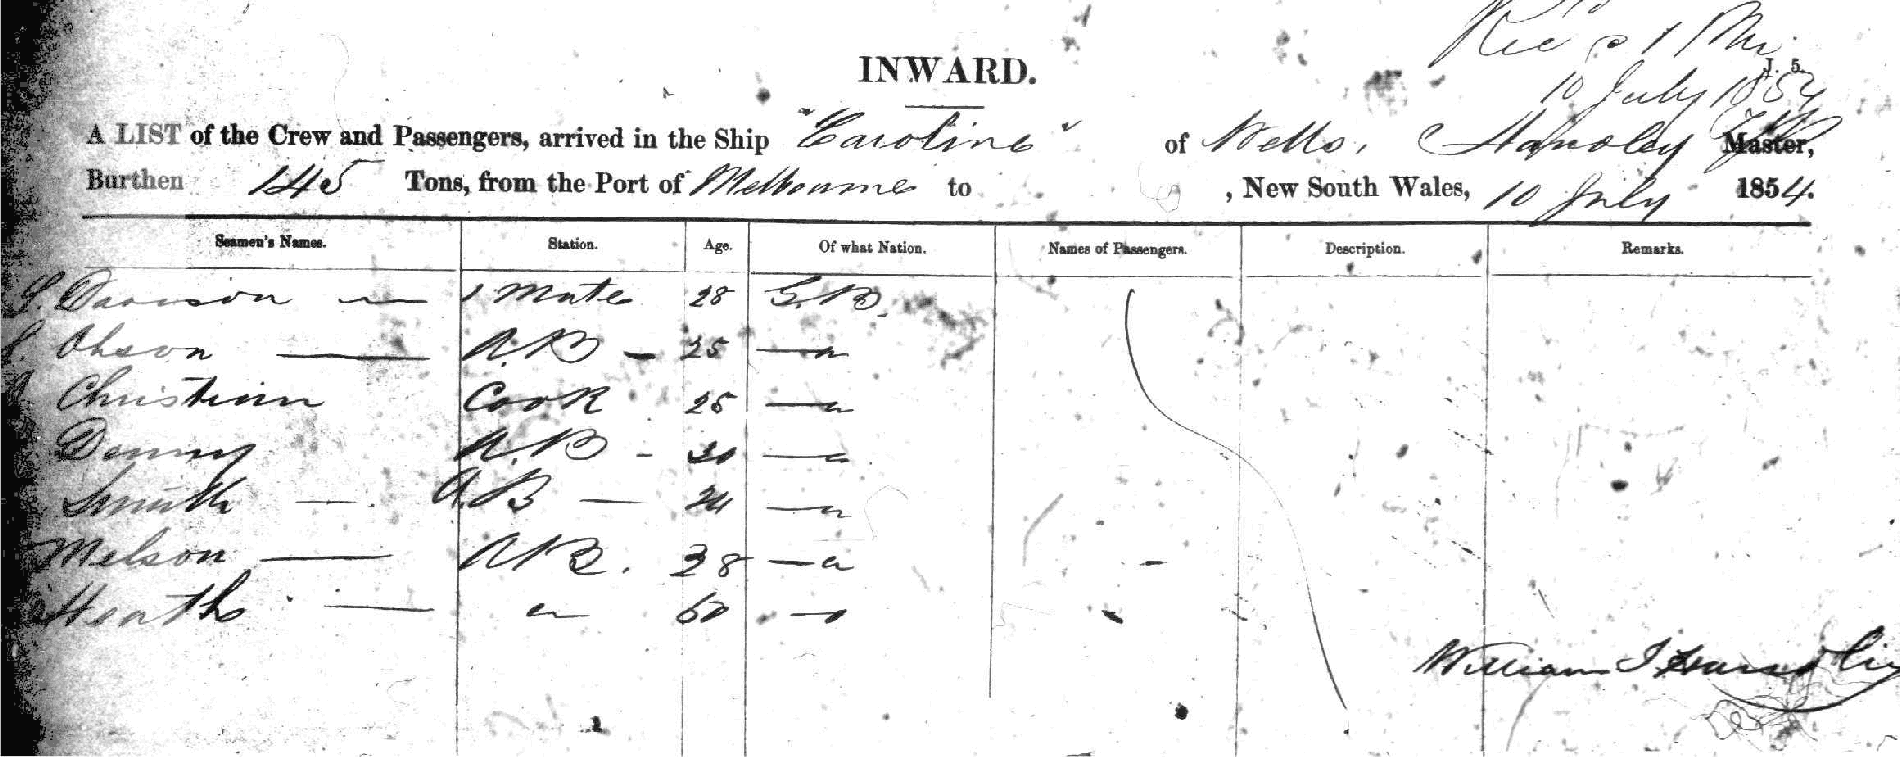 10 July 1854
J. 5.
INWARD.
A LIST of the Crew and Passengers, arrived in the Ship "Caroline" of Master,
Burthen 145 Tons, from the Port of Melbourne to , New South Wales, 10 July 1854.
Seamen's Names. Station. Age. Of what Nation. Names of Passengers. Description. Remarks.
1 Mate 28 G.B.
A.B — 25 —"
Christian Cook 25 —"
Denny A.B - 30 —"
Smith — A.B — 24 —"
Melson — A.B. 38 —"
Heath — " 60 —"
William